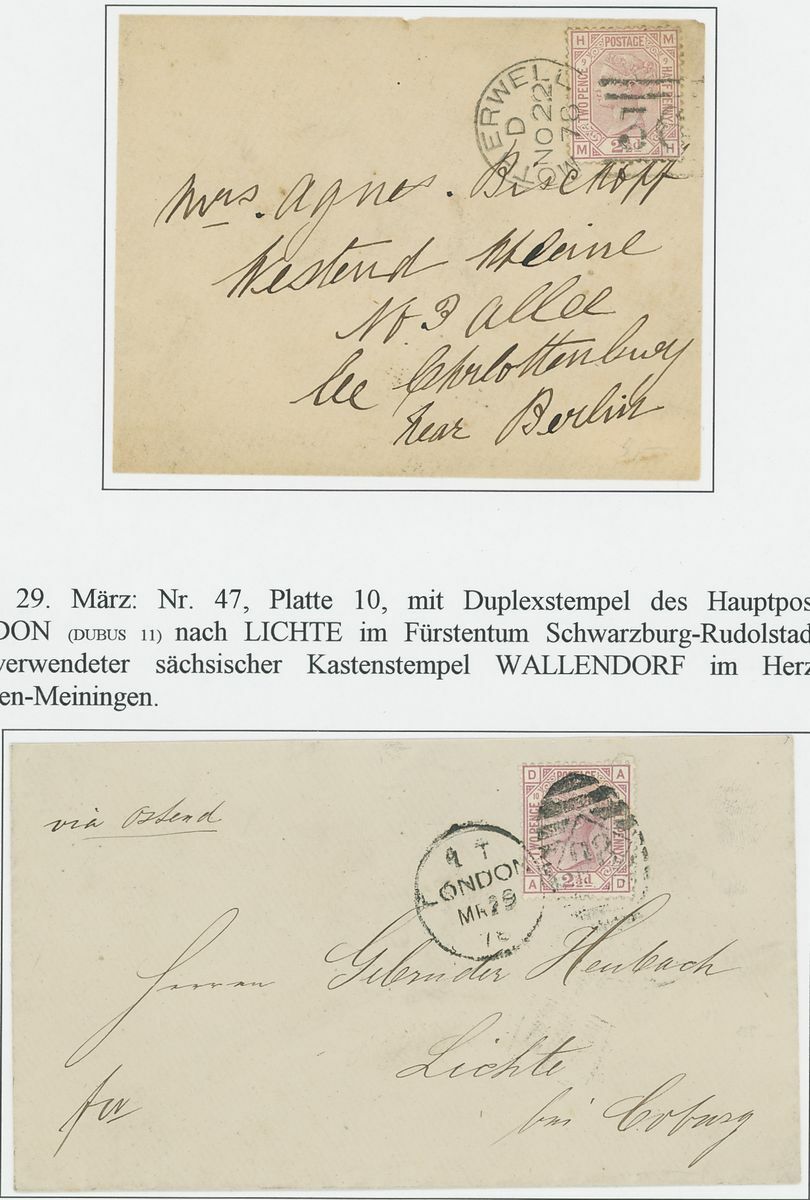 H POSTAGE M
9 9
TWO PENCE HALF PENNY
M 2½d H
ERWELL
D
NO 22
78
Mrs. Agnes. Bischoff
Westend Kleine
No 3 allee
bee Chrlottenburg
near Berlin
29. März: Nr. 47, Platte 10, mit Duplexstempel des Hauptpos
DON (DUBUS 11) nach LICHTE im Fürstentum Schwarzburg-Rudolstad
verwendeter sächsischer Kastenstempel WALLENDORF im Herz
en-Meiningen.
D POSTAGE A
10
TWO PENCE PENNY
A 2½d D
via Ostend
T
LONDON
MR 29
78
Herren Gebruder Heubach
Lichte
bei Coburg